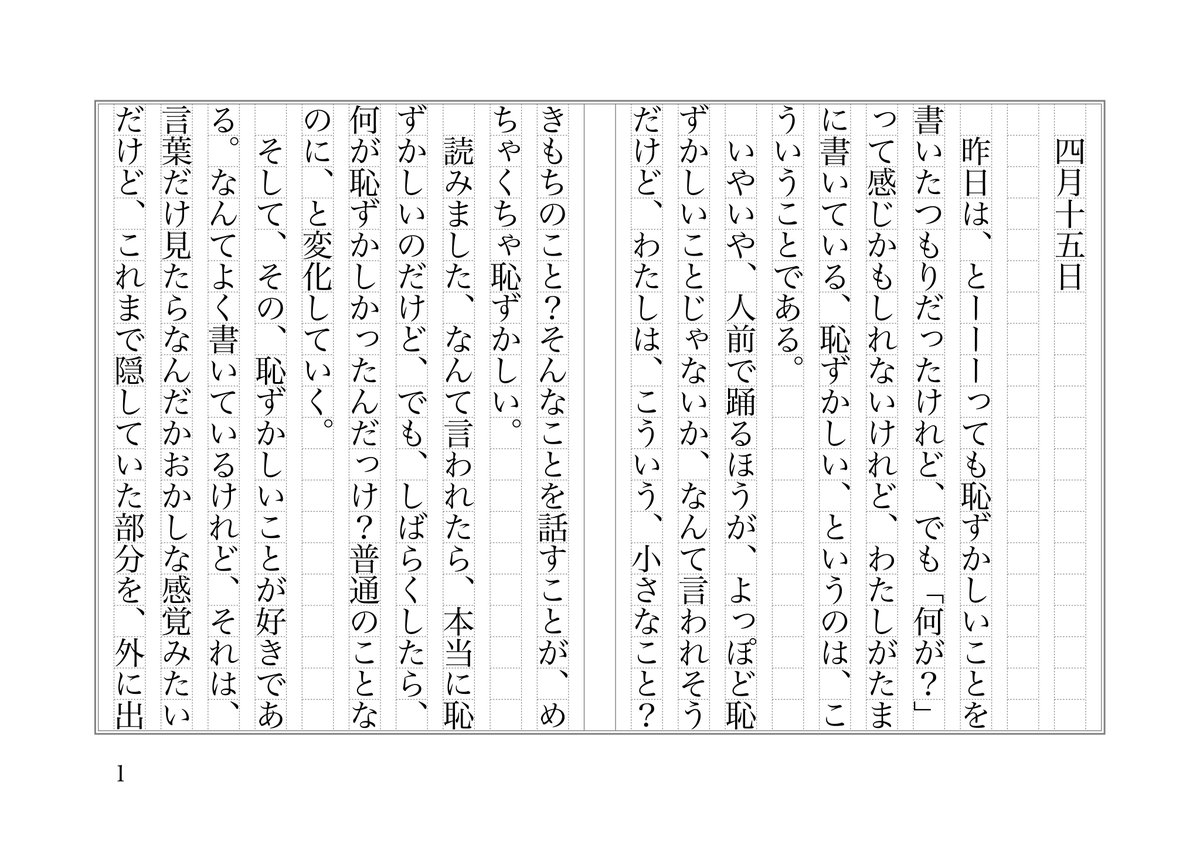 四月十五日
　昨日は、とーーーっても恥ずかしいことを
書いたつもりだったけれど、でも「何が？」
って感じかもしれないけれど、わたしがたま
に書いている、恥ずかしい、というのは、こ
ういうことである。
　いやいや、人前で踊るほうが、よっぽど恥
ずかしいことじゃないか、なんて言われそう
だけど、わたしは、こういう、小さなこと？
きもちのこと？そんなことを話すことが、め
ちゃくちゃ恥ずかしい。
　読みました、なんて言われたら、本当に恥
ずかしいのだけど、でも、しばらくしたら、
何が恥ずかしかったんだっけ？普通のことな
のに、と変化していく。
　そして、その、恥ずかしいことが好きであ
る。なんてよく書いているけれど、それは、
言葉だけ見たらなんだかおかしな感覚みたい
だけど、これまで隠していた部分を、外に出
1